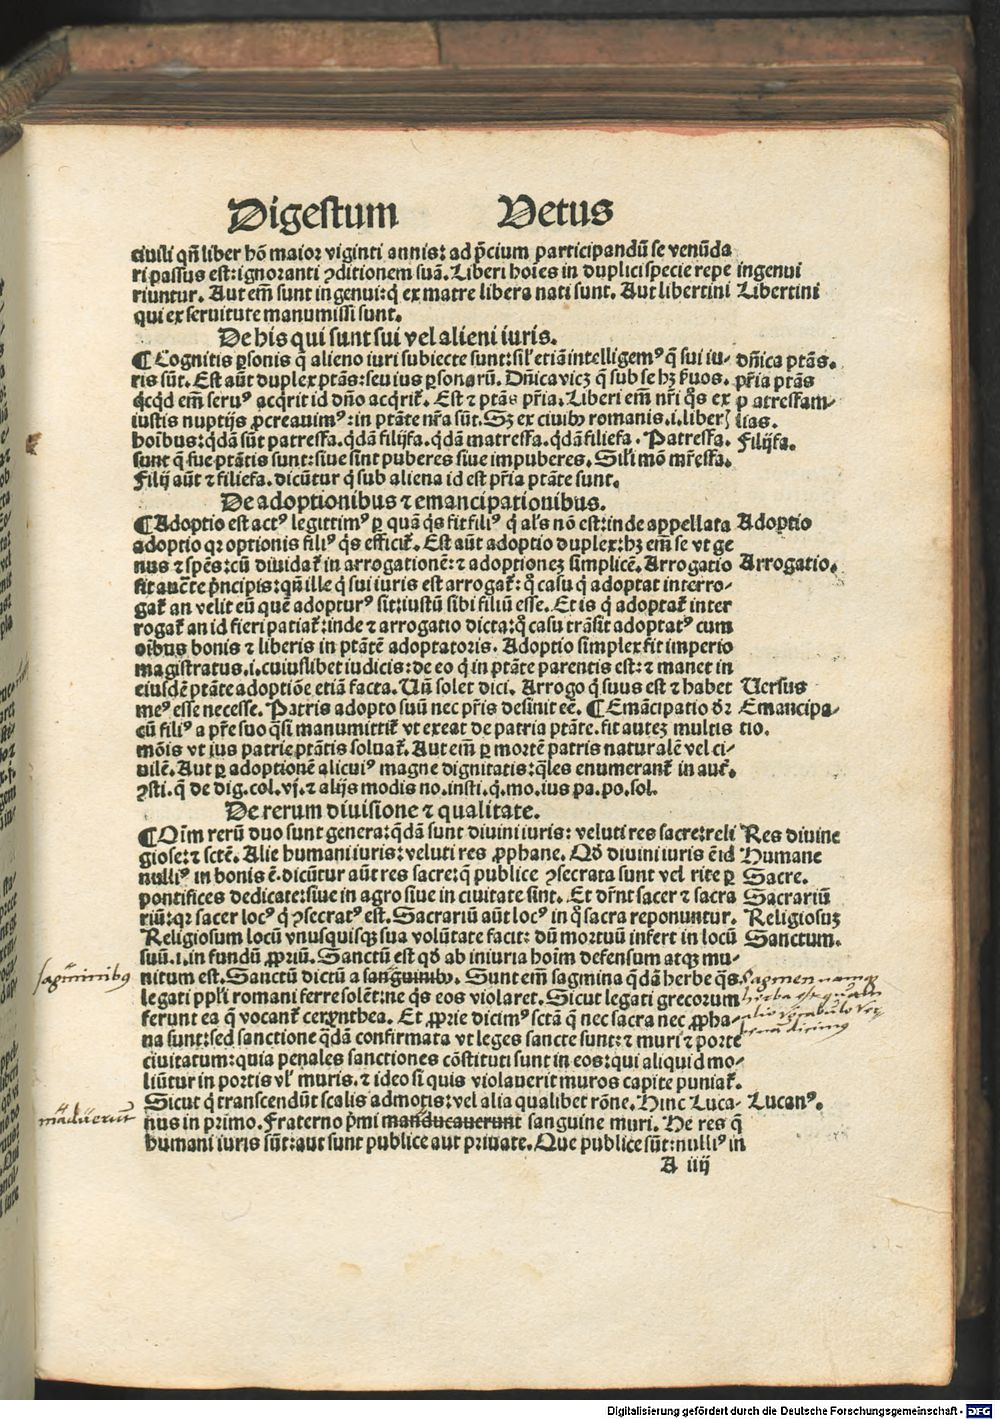 Digestum Vetus
ciuili qñ liber hõ maior viginti annis: ad p̃cium participandũ se venũda
ri passus est: ignoranti ꝯditionem suã. Liberi hoĩes in duplici specie repe ingenui
riuntur. Aut em̃ sunt ingenui: q̇ ex matre libera nati sunt. Aut libertini Libertini
qui ex seruitute manumissi sunt.
De his qui sunt sui vel alieni iuris.
¶ Cognitis ꝑsonis q̃ alieno iuri subiecte sunt: sil' etiã intelligemꝰ q̃ sui iu- dñica ptãs.
ris sũt. Est aũt duplex ptãs: seu ius ꝑsonarũ. Dñica vicꝫ q̃ sub se hꝫ ẜuos. pr̃ia ptãs
q̇cq̇d em̃ seruꝰ acq̇rit id dño acq̇rit̃. Est ⁊ ptãs pr̃ia. Liberi em̃ nr̃i q̇s ex patresfam-
iustis nuptijs ꝓcreauimꝰ: in ptãte nr̃a sũt. Sꝫ ex ciuibꝰ romanis .i. liberꝭ lias.
hoĩbus: q̇dã sũt patresfa. q̇dã filijfa. q̇dã matresfa. q̇dã filiefa. Patresfa. Filijfa.
sunt q̃ sue ptãtis sunt: siue sint puberes siue impuberes. Sil'i mõ mr̃esfa.
Filij aũt ⁊ filiefa. dicũtur q̇ sub aliena id est pr̃ia ptãte sunt.
De adoptionibus ⁊ emancipationibus.
¶ Adoptio est actꝰ legittimꝰ ꝑ quã q̇s fit filiꝰ q̇ al's nõ est: inde appellata Adoptio
adoptio qꝛ optionis filiꝰ q̇s efficit̃. Est aũt adoptio duplex: hꝫ em̃ se vt ge
nus ⁊ sp̃es: cũ diuidat̃ in arrogationẽ: ⁊ adoptioneꝫ simplicẽ. Arrogatio Arrogatio.
fit aucte p̃ncipis: qñ ille q̇ sui iuris est arrogat̃: q̊ casu q̇ adoptat interro-
gat̃ an velit eũ quẽ adopturꝰ sit: iustũ sibi filiũ esse. Et is q̇ adoptat̃ inter
rogat̃ an id fieri patiat̃: inde ⁊ arrogatio dicta: q̊ casu trãsit adoptatꝰ cum
oĩbus bonis ⁊ liberis in ptãtẽ adoptatoris. Adoptio simplex fit imperio
magistratus .i. cuiuslibet iudicis: de eo q̇ in ptãte parentis est: ⁊ manet in
eiusdẽ ptãte adoptiõe etiã facta. Uñ solet dici. Arrogo q̇ suus est ⁊ habet Uersus
meꝰ esse necesse. Patris adopto suũ nec pr̃is desinit eẽ. ¶ Emãcipatio dr̃ Emancipa-
cũ filiꝰ a pr̃e suo q̃si manumittit̃ vt exeat de patria ptãte. fit auteꝫ multis tio.
mõis vt ius patrie ptãtis soluat̃. Aut em̃ ꝑ mortẽ patris naturalẽ vel ci-
uilẽ. Aut ꝑ adoptionẽ alicuiꝰ magne dignitatis: q̃les enumerant̃ in auct̃.
ꝯsti. q̃ de dig. col. vj. ⁊ alijs modis no. insti. q̇. mo. ius pa. po. sol.
De rerum diuisione ⁊ qualitate.
¶ Oĩm rerũ duo sunt genera: q̃dã sunt diuini iuris: veluti res sacre: reli Res diuine
giose: ⁊ sctẽ. Alie humani iuris: veluti res ꝓphane. Qđ diuini iuris ẽ id Humane
nulliꝰ in bonis ẽ. dicũtur aũt res sacre: q̃ publice ꝯsecrata sunt vel rite ꝑ Sacre.
pontifices dedicate: siue in agro siue in ciuitate sint. Et dr̃nt sacer ⁊ sacra Sacrariũ
riũ: qꝛ sacer locꝰ q̇ ꝯsecratꝰ est. Sacrariũ aũt locꝰ in q̊ sacra reponuntur. Religiosuꝫ
Religiosum locũ vnusquisqꝫ sua volũtate facit: dũ mortuũ infert in locũ Sanctum.
suũ .i. in fundũ ꝓpriũ. Sanctũ est qđ ab iniuria hoĩm defensum atqꝫ mu-
sagminibꝰ nitum est. Sanctũ dictũ a sanguinibꝰ. Sunt em̃ sagmina q̃dã herbe q̃s Sagmen namqꝫ
legati ppl'i romani ferre solẽt: ne q̇s eos violaret. Sicut legati grecorum herba est
ferunt ea q̃ vocant̃ cerynthea. Et ꝓprie dicimꝰ sctã q̃ nec sacra nec ꝓpha- alio vocabulo ver
na sunt: sed sanctione q̃dã confirmata vt leges sancte sunt: ⁊ muri ⁊ porte benã dicimꝰ
ciuitatum: quia penales sanctiones cõstituti sunt in eos: qui aliquid mo-
liũtur in portis vl' muris. ⁊ ideo si quis violauerit muros capite puniat̃.
Sicut q̇ transcendũt scalis admotis: vel alia qualibet rõne. Hinc Luca- Lucanꝰ.
maduerũt nus in primo. Fraterno p̃mi manducauerunt sanguine muri. He res q̃
humani iuris sũt: aut sunt publice aut priuate. Que publice sũt: nulliꝰ in
A iiij
Digitalisierung gefördert durch die Deutsche Forschungsgemeinschaft - DFG